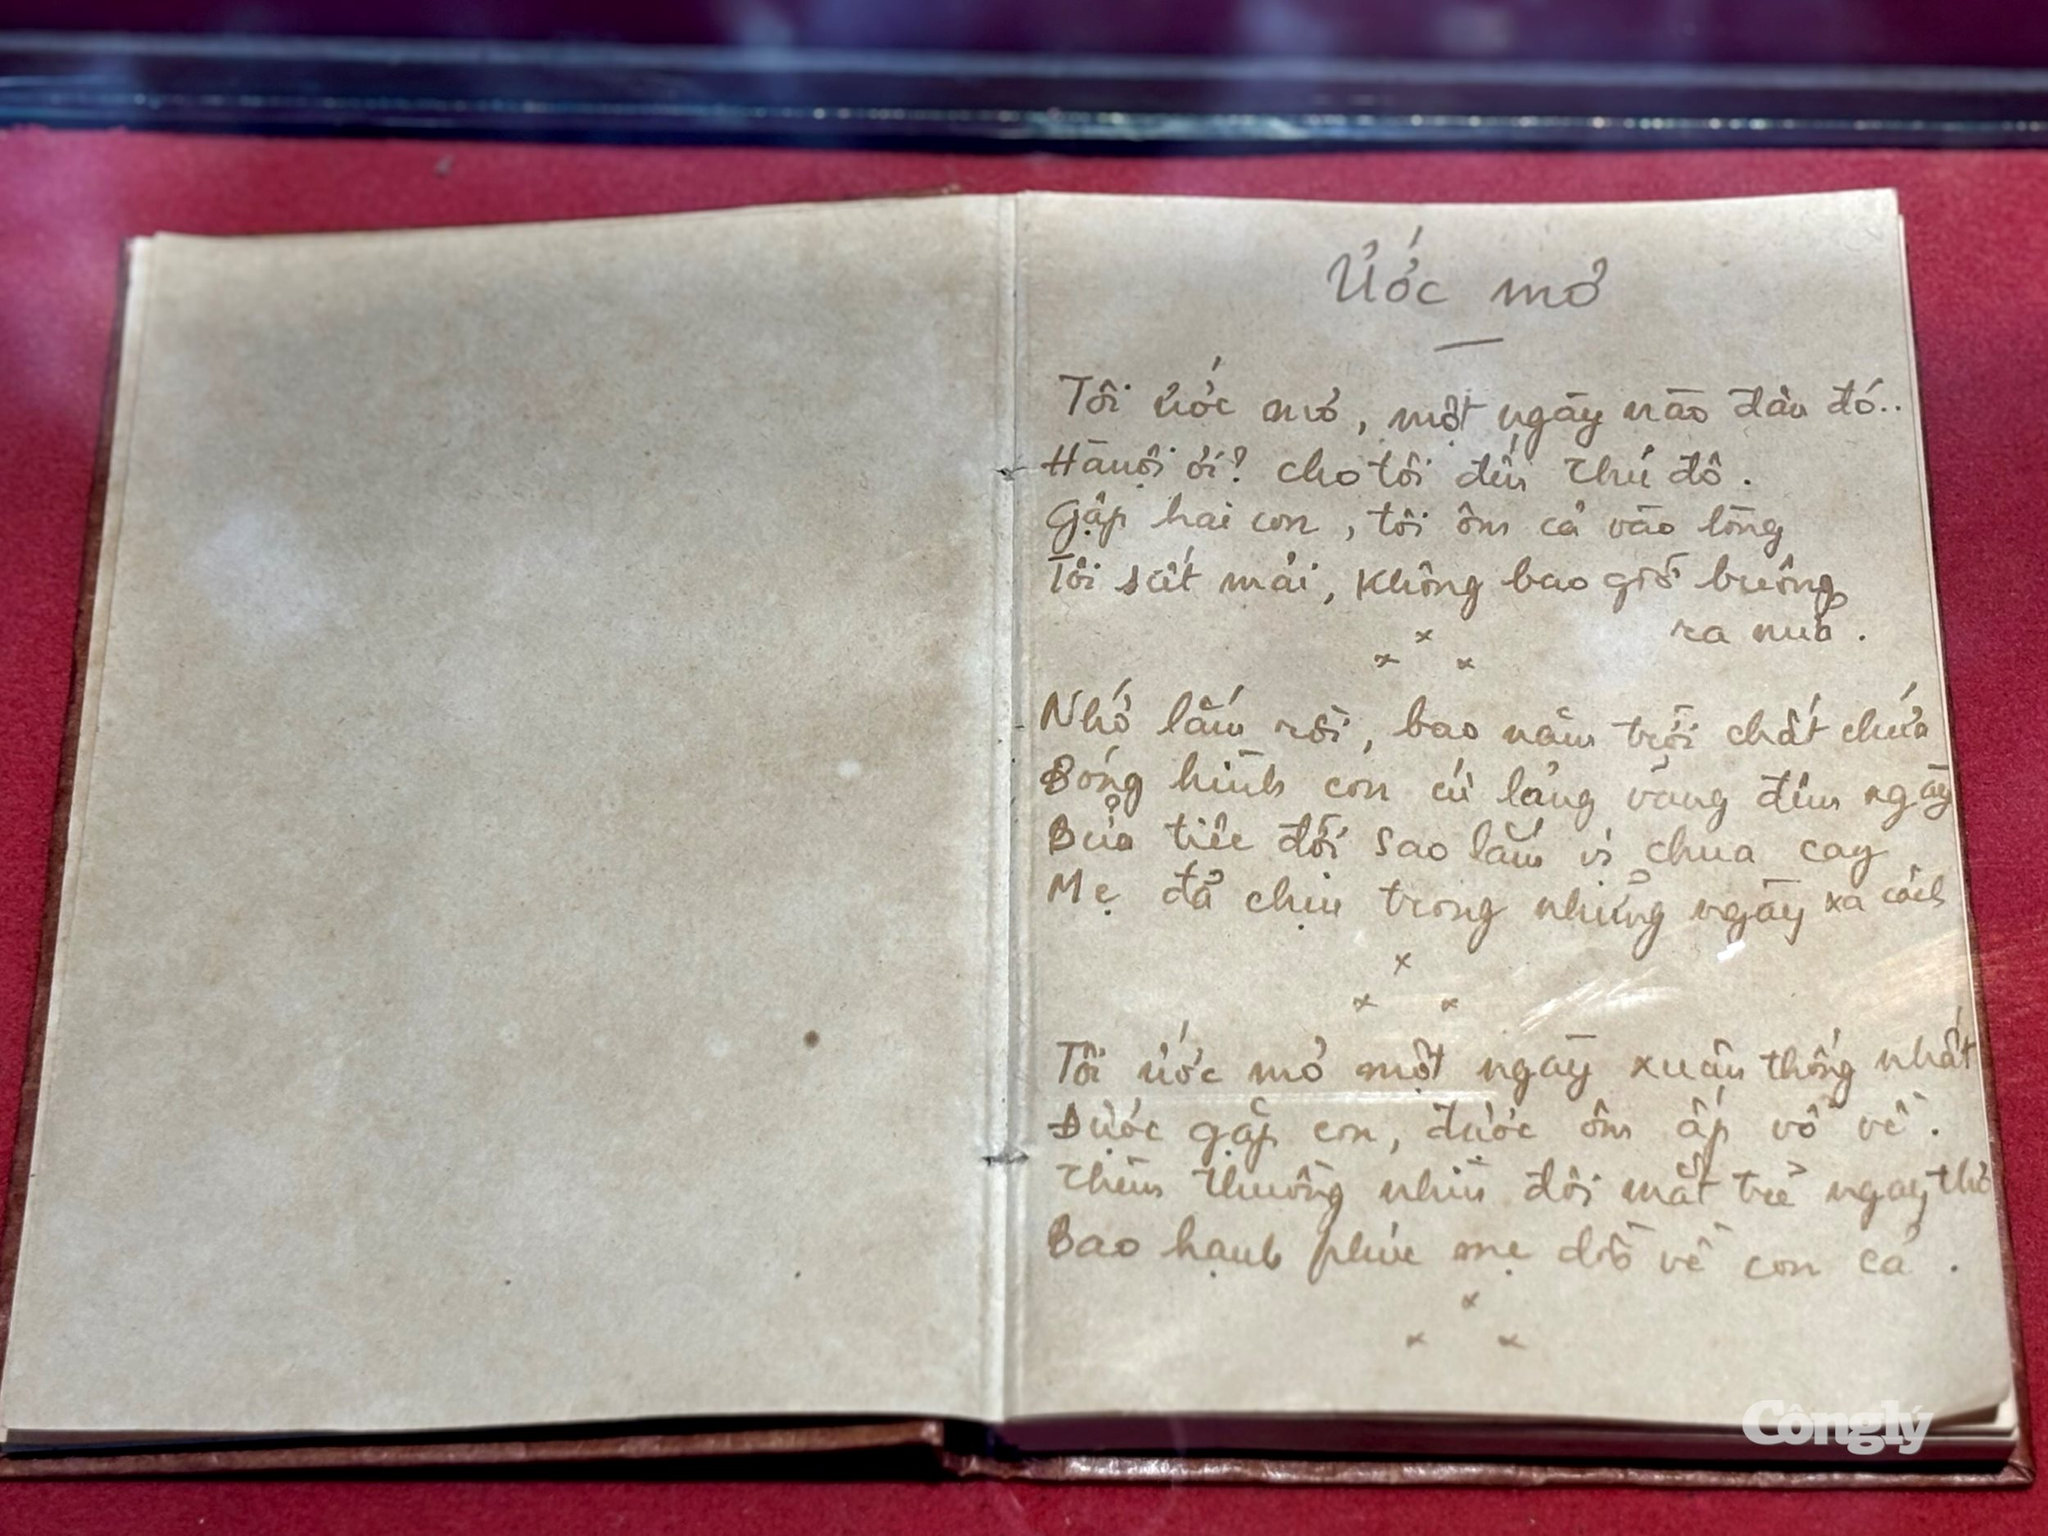 Ước mơ
Tôi ước mơ, một ngày nào đâu đó..
Hà nội ơi? cho tôi đến Thủ đô.
Gặp hai con, tôi ôm cả vào lòng
Tôi siết mải, không bao giờ buông
ra nửa.
Nhớ lắm rồi, bao năm trời chất chứa
Bóng hình con cứ lảng vảng đêm ngày
Bửa tiệc đời sao lắm vị chua cay
Mẹ đả chịu trong những ngày xa cách
Tôi ước mơ một ngày xuân thống nhất
Được gặp con, được ôm ấp vổ về.
Thèm thuồng nhìn đôi mắt trẻ ngay thơ
Bao hạnh phúc mẹ dồn về con cả.
Cônglý